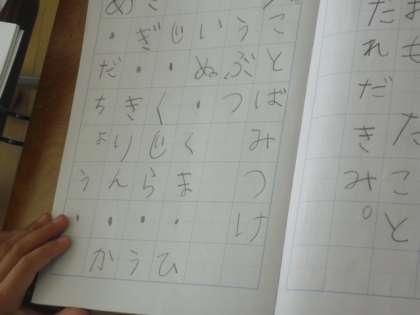 も たこと
たれだきみ。
ことばみつけ
うぶつ
いぬ・くま・ひ
じ・くじら・う
さぎ・きりん・か
め・だちょう・